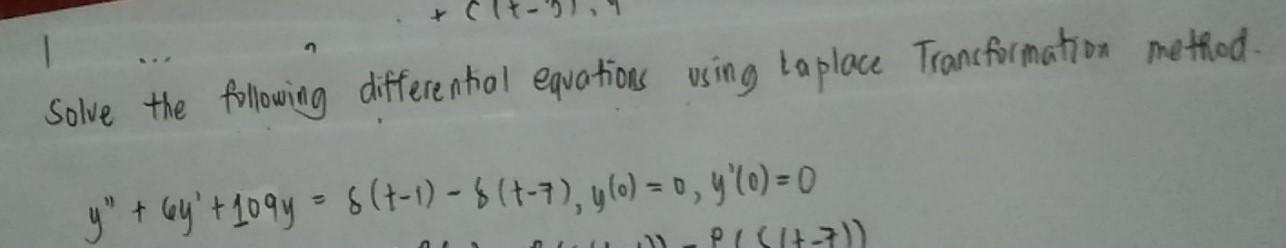 Solve the following differential equations using Laplace Transformation method.
y" + 6y' + 109y = δ(t-1) - δ(t-7), y(0) = 0, y'(0) = 0